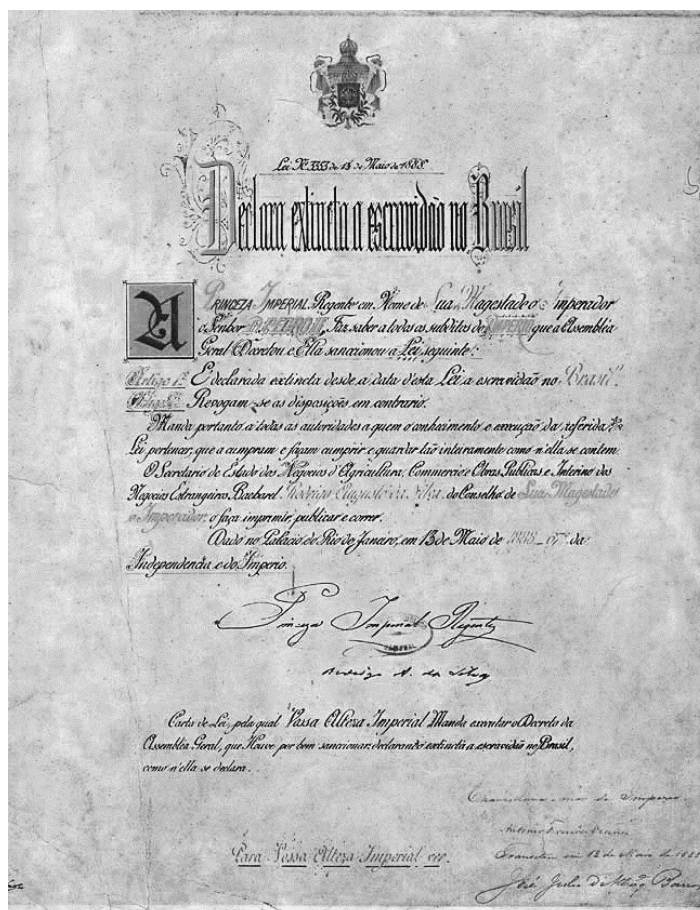 Lei Nº 3353 de 13 de Maio de 1888.
Declara extincta a escravidão no Brasil
A PRINCEZA IMPERIAL, Regente em Nome de Sua Magestade o Imperador
o Senhor D. PEDRO II, Faz saber a todos os subditos do IMPERIO que a Assembléa
Geral Decretou e Ella sanccionou a Lei seguinte:
Artigo 1º É declarada extincta desde a data d'esta Lei a escravidão no Brasil.
Revogam-se as disposições em contrario.
Manda portanto a todas as autoridades a quem o conhecimento e execução da referida
Lei pertencer, que a cumpram e façam cumprir e guardar tão inteiramente como n'ella se contem.
O Secretario de Estado dos Negocios d'Agricultura, Commercio e Obras Publicas e Interino dos
Negocios Estrangeiros, Bacharel Rodrigo Augusto da Silva, do Conselho de Sua Magestade
o Imperador, o faça imprimir, publicar e correr.
Dado no Palacio do Rio de Janeiro, em 13 de Maio de 1888 67º da
Independencia e do Imperio.
Princeza Imperial Regente
Rodrigo A. da Silva
Carta de Lei, pela qual Vossa Alteza Imperial Manda executar o Decreto da
Assembléa Geral, que Houve por bem sanccionar, declarando extincta a escravidão no Brasil,
como n'ella se declara.
Para Vossa Alteza Imperial ver.